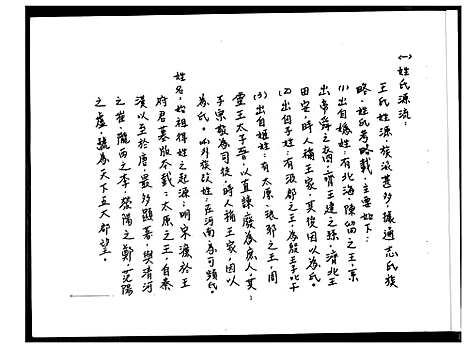 (一)姓氏源流：
王氏姓源族派甚多，據通志氏族
略、姓氏考略載，主要如下：
(1)出自媯姓：有北海、陳留之王，系
出帝舜之裔，齊王建之孫，濟北王
田安，時人稱王家，其後因以為氏。
(2)出自子姓：有汲郡之王，為殷王子比干
(3)出自姬姓：有太原、琅邪之王，周
靈王太子晉，以直諫廢為庶人，其
子宗敬為司徒，時人稱王家，因以
為氏。
姓名，始祖得姓之起源：明宋濂於王
府君墓版本載：太原之王，自秦
漢以至於唐，最多顯著，與清河
之崔，隴西之李，滎陽之鄭，范陽
之盧，號為天下五大郡望。